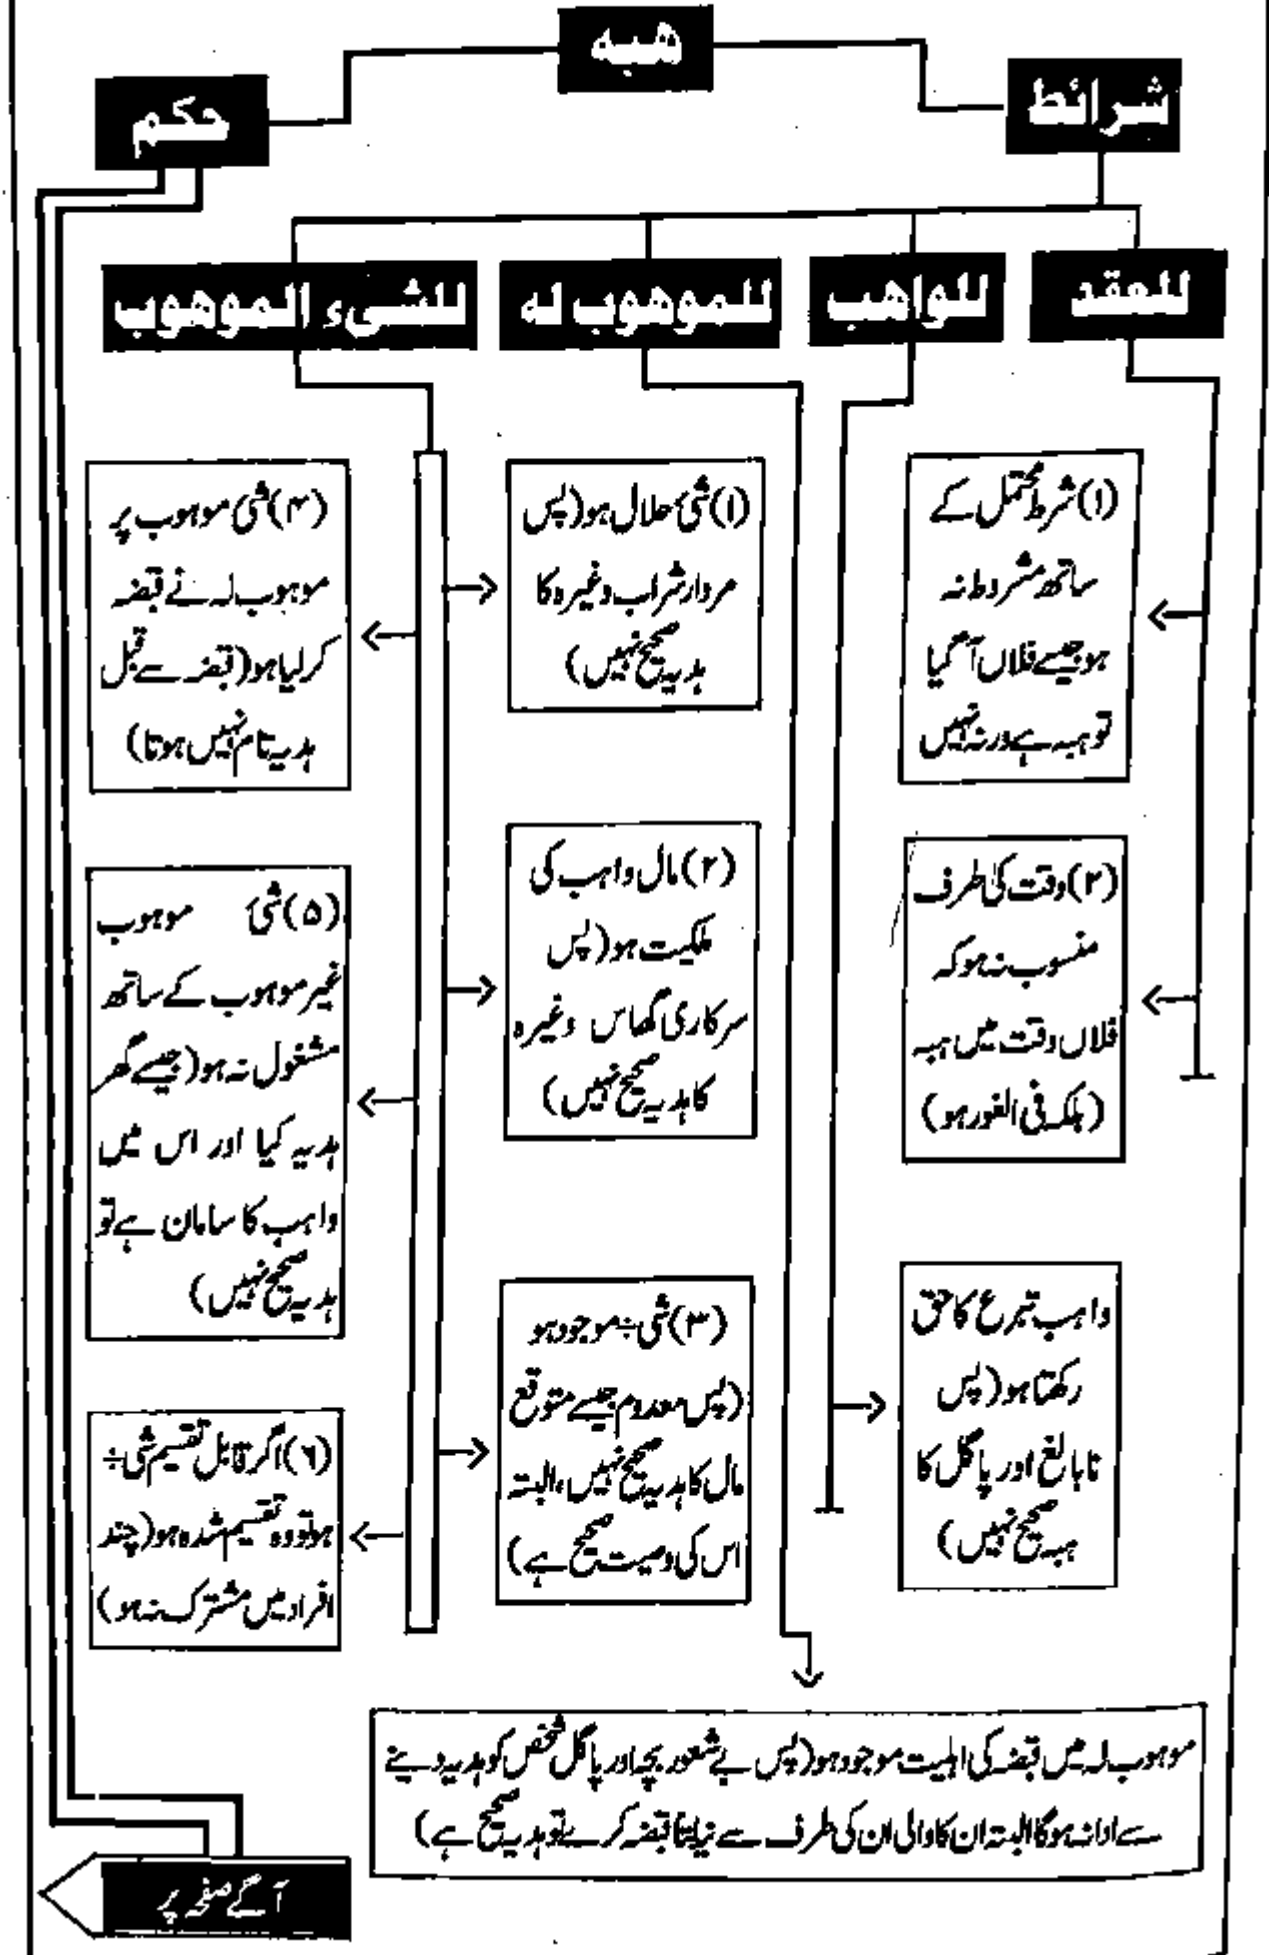 ھبہ
شرائط
حکم
للعقد
للواھب
للموھوب لہ
للشیء الموھوب
(۱) شرط محتمل کے
ساتھ مشروط نہ
ہو جیسے فلاں آ گیا
تو ہبہ ہے ورنہ نہیں
(۲) وقت کی طرف
منسوب نہ ہو کہ
فلاں وقت میں ہبہ
(بلکہ فی الفور ہو)
واہب تبرع کا حق
رکھتا ہو (پس
نابالغ اور پاگل کا
ہبہ صحیح نہیں)
(۱) شئ حلال ہو (پس
مردار شراب وغیرہ کا
ہدیہ صحیح نہیں)
(۲) مال واہب کی
ملکیت ہو (پس
سرکاری گھاس وغیرہ
کا ہدیہ صحیح نہیں)
(۳) شیٔ موجود ہو
(پس معدوم جیسے متوقع
مال کا ہدیہ صحیح نہیں، البتہ
اس کی وصیت صحیح ہے)
(۴) شئ موہوب پر
موہوب لہ نے قبضہ
کر لیا ہو (قبضہ سے قبل
ہدیہ تام نہیں ہوتا)
(۵) شئ موہوب
غیر موہوب کے ساتھ
مشغول نہ ہو (جیسے گھر
ہدیہ کیا اور اس میں
واہب کا سامان ہے تو
ہدیہ صحیح نہیں)
(۶) اگر قابل تقسیم شیٔ
ہو تو وہ تقسیم شدہ ہو (چند
افراد میں مشترک نہ ہو)
موہوب لہ میں قبضہ کی اہلیت موجود ہو (پس بے شعور بچہ اور پاگل شخص کو ہدیہ دینے
سے ادا نہ ہوگا البتہ ان کا والی ان کی طرف سے نیابتا قبضہ کرے تو ہدیہ صحیح ہے)
آگے صفحہ پر